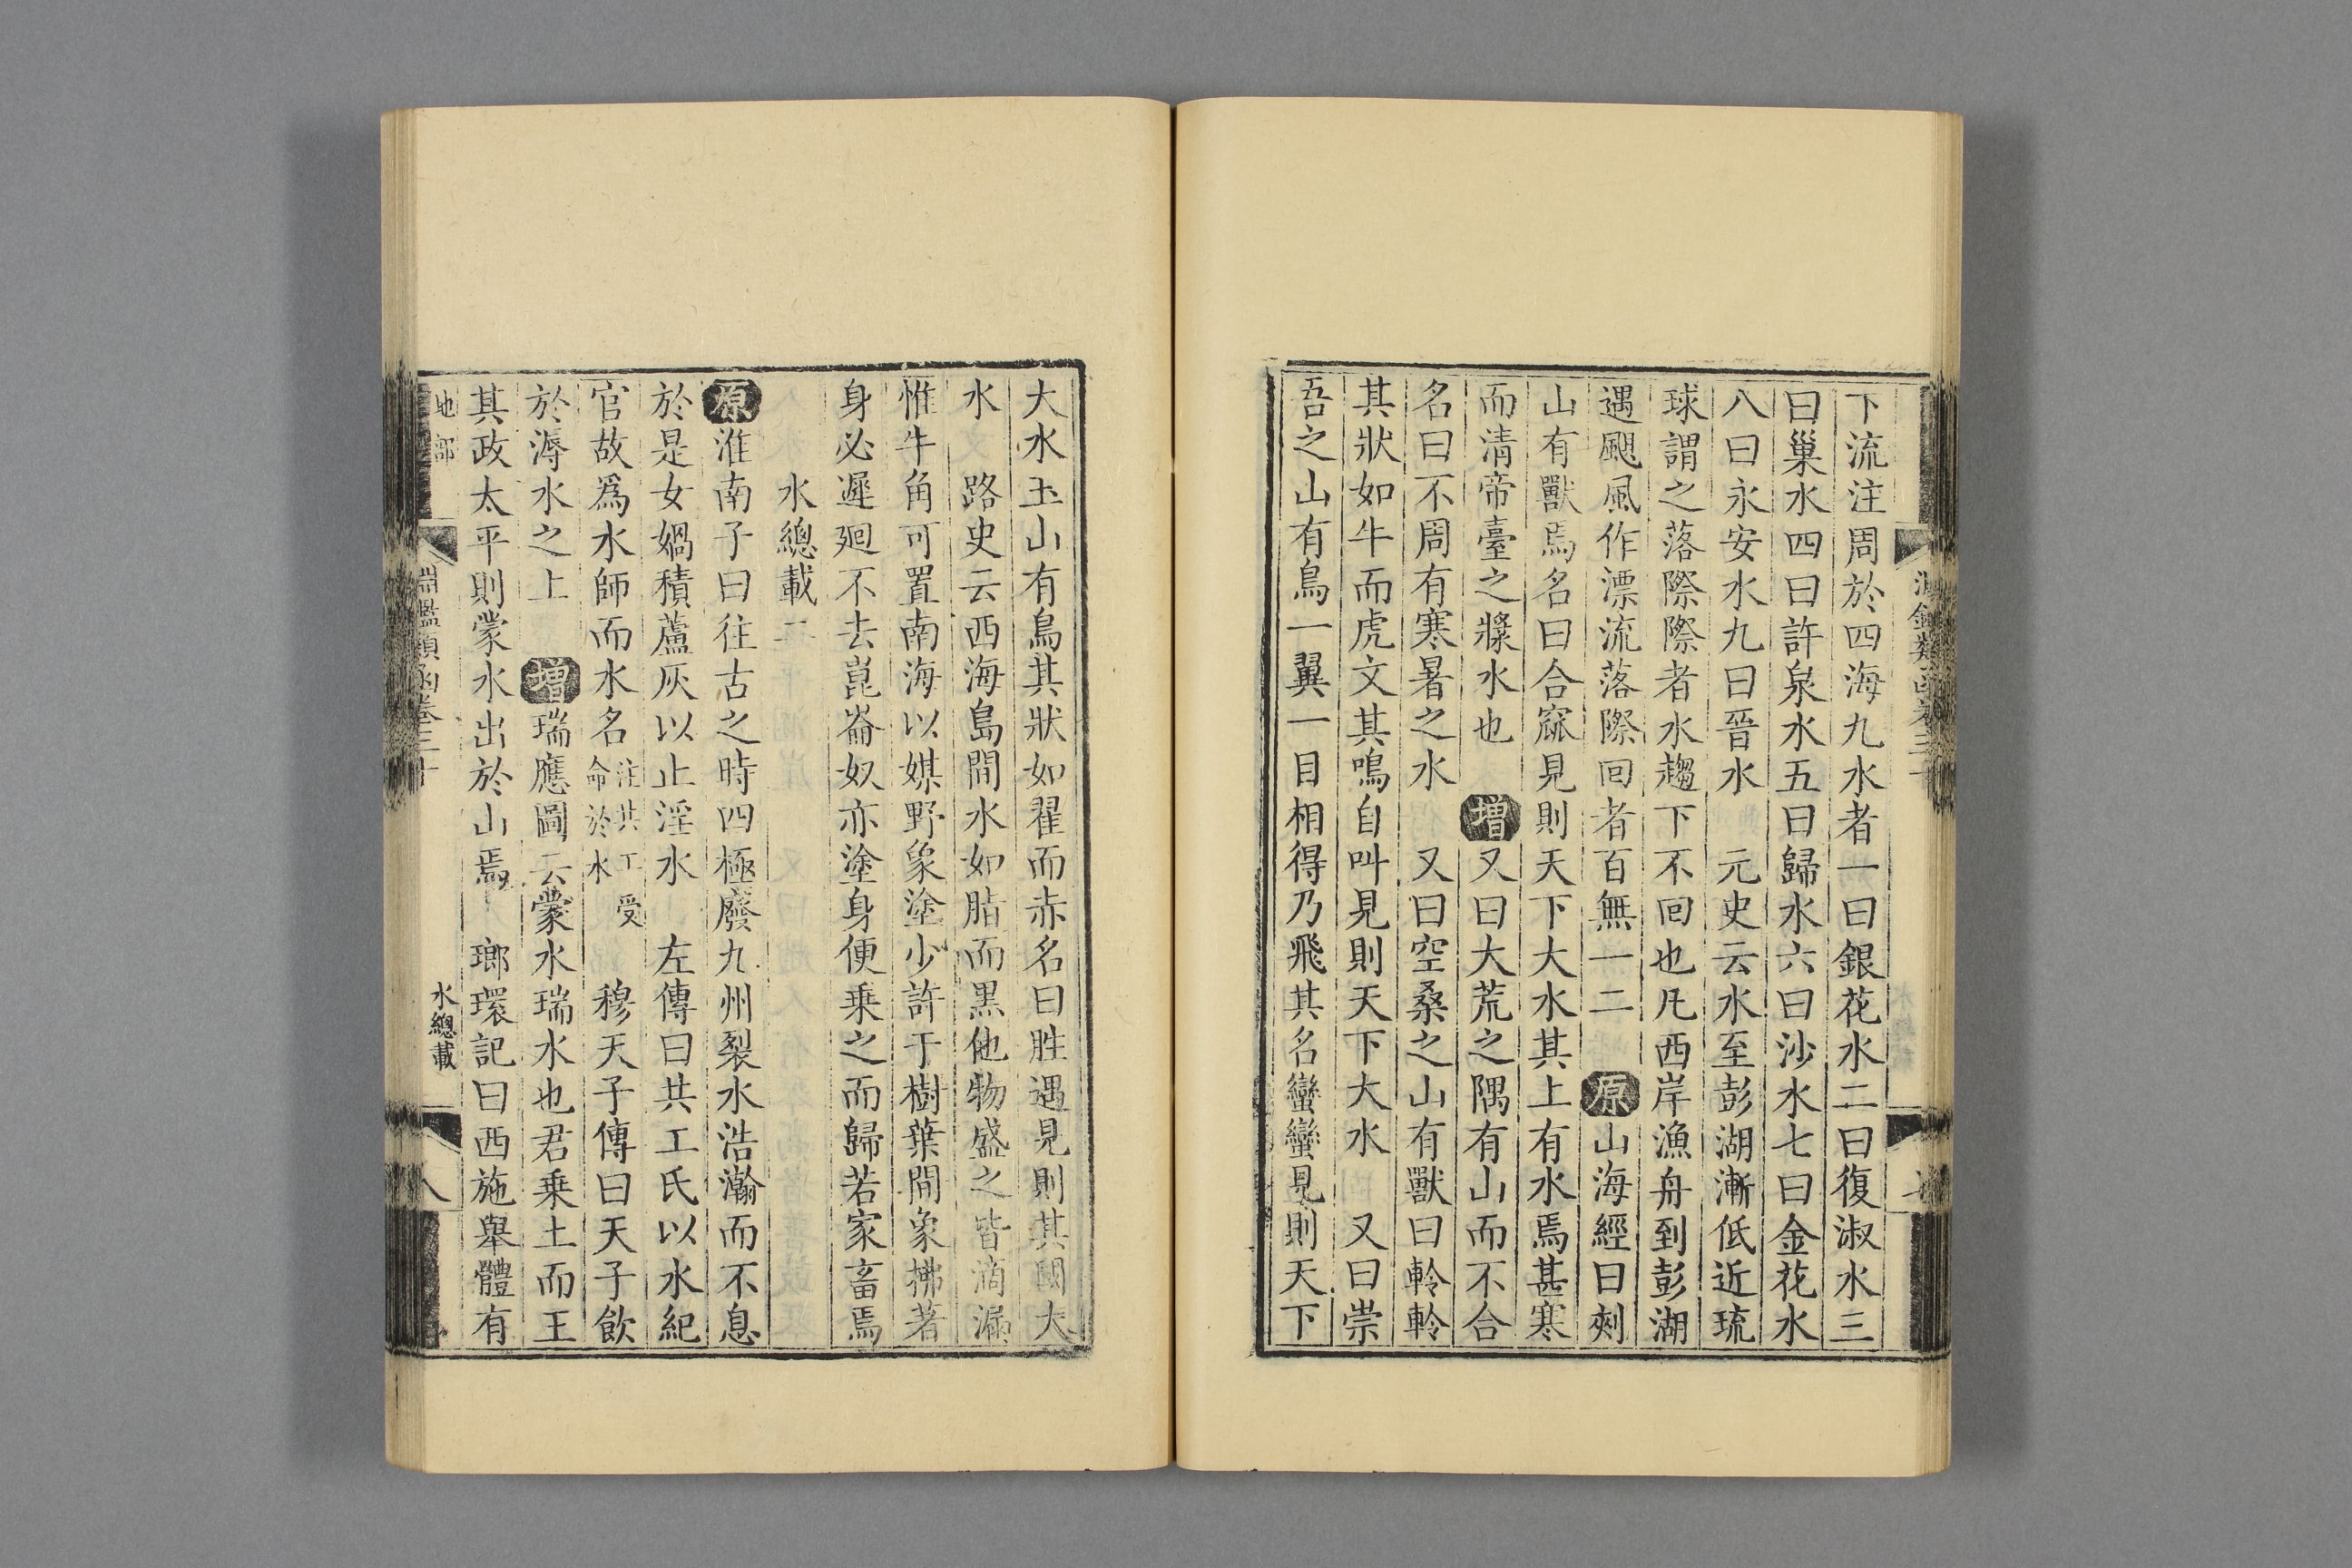 下流注周於四海九水者一曰銀花水二曰復淑水三
曰巢水四曰許泉水五曰歸水六曰沙水七曰金花水
八曰永安水九曰晉水　元史云水至彭湖漸低近琉
球謂之落際際者水趨下不回也凡西岸漁舟到彭湖
遇颶風作漂流落際回者百無一二　原山海經曰剡
山有獸焉名曰合窳見則天下大水其上有水焉甚寒
而清帝臺之漿水也　增又曰大荒之隅有山而不合
名曰不周有寒暑之水　又曰空桑之山有獸曰軨軨
其狀如牛而虎文其鳴自叫見則天下大水　又曰崇
吾之山有鳥一翼一目相得乃飛其名蠻蠻見則天下
大水玉山有鳥其狀如翟而赤名曰胜遇見則其國大
水　路史云西海島間水如脂而黑他物盛之皆滴漏
惟牛角可置南海以媒野象塗少許于樹葉間象拂著
身必遲廻不去崑崙奴亦塗身便乗之而歸若家畜焉
水總載二
原淮南子曰往古之時四極廢九州裂水浩瀚而不息
於是女媧積蘆灰以止淫水　左傳曰共工氏以水紀
官故爲水師而水名注共工受命於水　穆天子傳曰天子飲
於溽水之上　增瑞應圖云蒙水瑞水也君乗土而王
其政太平則蒙水出於山焉　瑯環記曰西施舉體有
地部　淵鑑類函卷三十　水總載　八